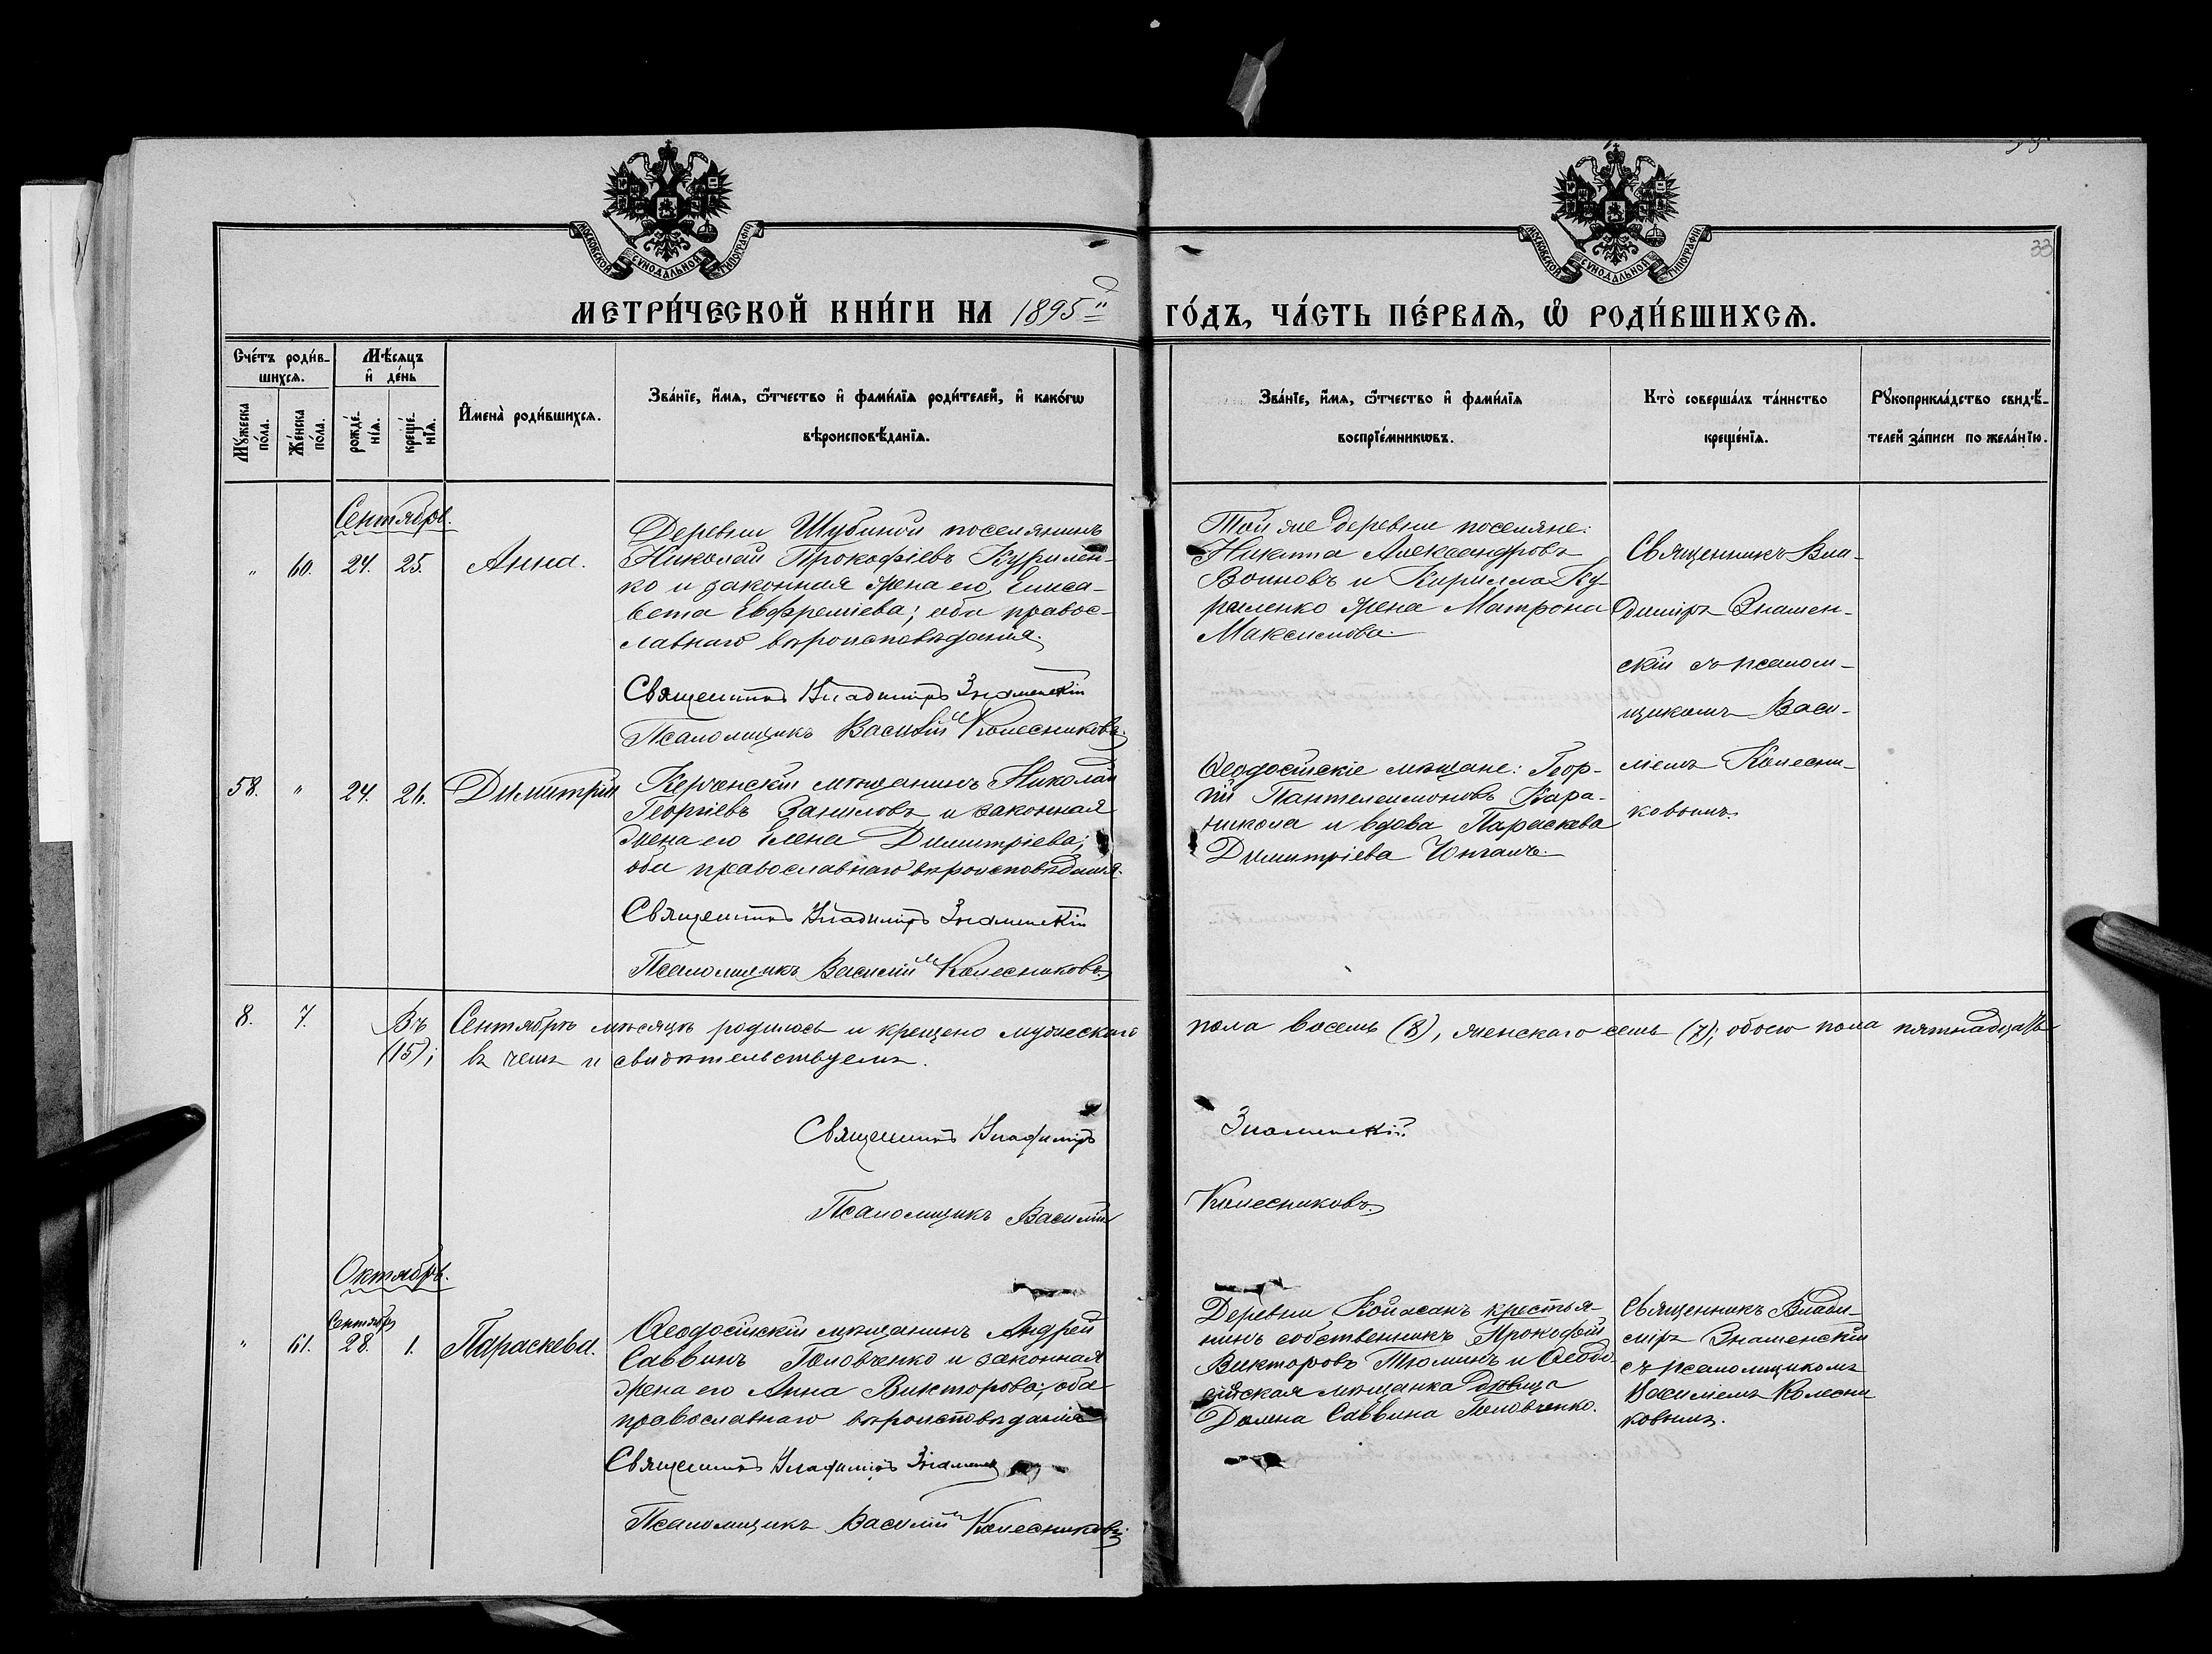 33
МОСКОВСКОЙ СѴНОДАЛЬНОЙ ТИПОГРАФІИ
МОСКОВСКОЙ СѴНОДАЛЬНОЙ ТИПОГРАФІИ
МЕТРИ́ЧЕСКОЙ КНИ́ГИ НА 1895й ГО́ДЪ, ЧА́СТЬ ПЕ́РВАѦ, Ѿ РОДИ́ВШИХСѦ.
Сче́тъ роди́в-
шихсѧ.
Мꙋ́жеска по́ла.
Же́нска по́ла.
Мѣ́сѧцъ
и҆ де́нь
рожде́нїѧ.
креще́нїѧ.
И҆мена̀ роди́вшихсѧ.
Зва́нїе, и҆́мѧ, ѻ҆́тчество и҆ фами́лїѧ роди́телей, и҆ како́гѡ
вѣроисповѣ́данїѧ.
Зва́нїе, и҆́мѧ, ѻ҆́тчество и҆ фами́лїѧ
воспрїе́мникѡвъ.
Кто̀ соверша́лъ та́инство
креще́нїѧ.
Рꙋкоприкла́дство свидѣ́-
телей за́писи по жела́нїю.
Сентябрь.
" 60. 24. 25. Анна.
Деревни Шубиной поселянинъ
Николай Прокофіевъ Курилен-
ко и законная жена его Елиса-
вета Евфреміева; оба правос-
лавнаго вѣроисповѣданія.
Священникъ Владиміръ Знаменскій
Псаломщикъ Василій Колесниковъ.
Той же деревни поселяне:
Никита Александровъ
Воиновъ и Кирилла Ку
риленко жена Матрона
Максимова.
Священникъ Вла-
диміръ Знамен-
скій съ псалом-
щикомъ Васи-
ліемъ Колесни-
ковымъ.
58. " 24. 26. Димитрій
Керченскій мѣщанинъ Николай
Георгіевъ Даниловъ и законная
жена его Елена Димитріева;
оба православнаго вѣроисповѣданія.
Священникъ Владиміръ Знаменскій
Псаломщикъ Василій Колесниковъ.
Ѳеодосійскіе мѣщане: Геор-
гій Пантелеимоновъ Кара-
никола и вдова Параскева
Димитріева
8. 7. Въ Сентябрѣ мѣсяцѣ родилось и крещено мужескаго пола восемь (8), женскаго семь (7); обоего пола пятнадцать
(15); въ чемъ и свидѣтельствуемъ.
Священникъ Владиміръ Знаменскій.
Псаломщикъ Василій Колесниковъ.
Октябрь.
Сентября
" 61. 28. 1. Параскева.
Ѳеодосійскій мѣщанинъ Андрей
Саввинъ Головченко и законная
жена его Анна Викторова; оба
православнаго вѣроисповѣданія
Священникъ Владиміръ Знаменск
Псаломщикъ Василій Колесниковъ.
Деревни Койасанъ крестья-
нинъ собственникъ Прокофій
Викторовъ Тюминъ и Ѳеодо-
сійская мѣщанка дѣвица
Домна Саввина Головченко.
Священникъ Влади-
міръ Знаменскій
съ псаломщикомъ
Василіемъ Колесни
ковымъ.